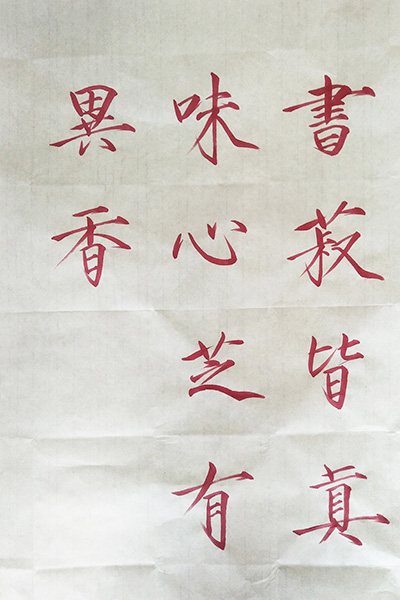 書菽皆真
味心芝有
異香